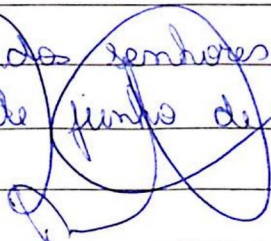 dos senhores
de junho de